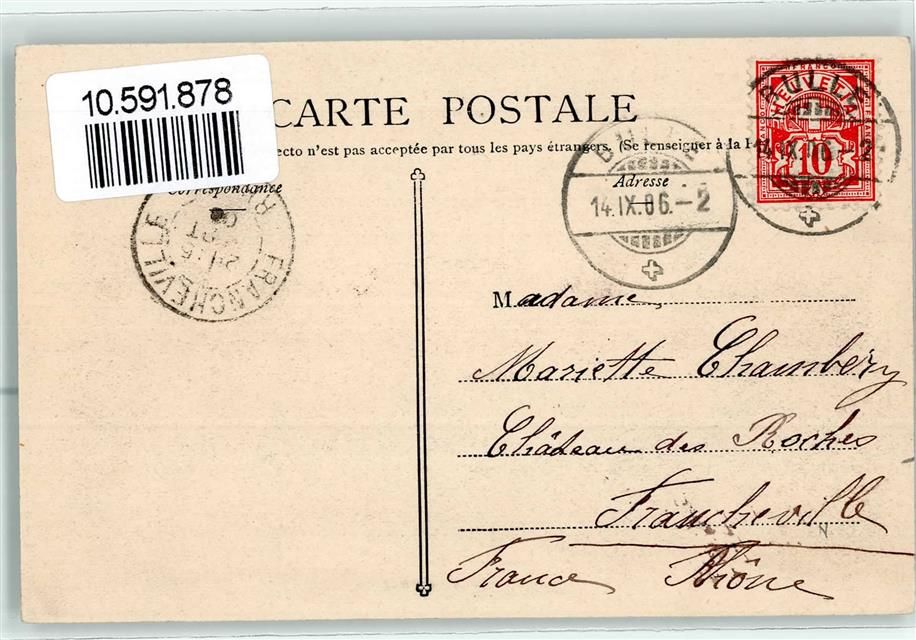 10.591.878
CARTE POSTALE
ecto n'est pas acceptée par tous les pays étrangers. (Se renseigner à la
Correspondance
Adresse
FRANCO
HELVETIA
10
BULLE
14.IX.06.-2
BULLE
14.IX.06.-2
FRANCHEVILLE
Madame,
Mariette Chambéry
Château des Roches
Francheville
France Rhône